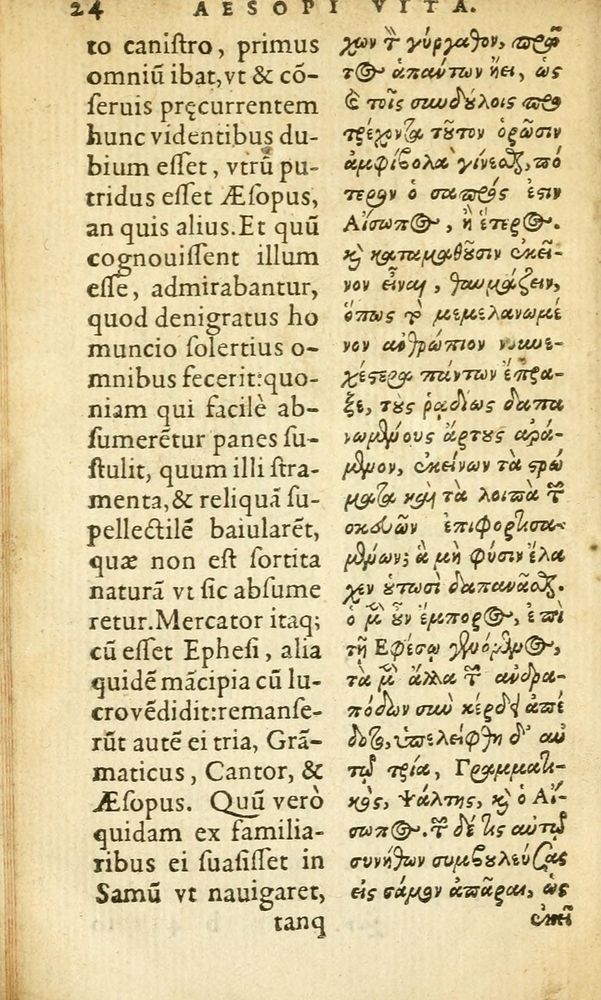 24 AESOPI VITA.
to caniſtro, primus
omniũ ibat,vt & cõ-
ſeruis pręcurrentem
hunc videntibus du-
bium eſſet, vtrũ pu-
tridus eſſet Æſopus,
an quis alius.Et quũ
cognouiſſent illum
eſſe, admirabantur,
quod denigratus ho
muncio ſolertius o-
mnibus fecerit:quo-
niam qui facilè ab-
ſumerẽtur panes ſu-
ſtulit, quum illi ſtra-
menta,& reliquã ſu-
pellectilẽ baiularẽt,
quæ non eſt ſortita
naturã vt ſic abſume
retur.Mercator itaq;
cũ eſſet Epheſi, alia
quidẽ mãcipia cũ lu-
crovẽdidit:remanſe-
rũt autẽ ei tria, Grã-
maticus, Cantor, &
Æſopus. Quũ verò
quidam ex familia-
ribus ei ſuaſiſſet in
Samũ vt nauigaret,
tanq
χων τ γύργαθον, πρὸ
τος ἁπάντων ᾔει, ὡς
ἐ τοῖς συνδούλοις προ
τρέχοντα τοῦτον ὁρῶσιν
ἀμφίβολα γίνεσθαι, πό
τερον ὁ σαπρός ἐστιν
Αἴσωπος, ἢ ἕτερος.
κὶ καταμαθοῦσιν ἐκεῖ-
νον εἶναι, θαυμάζειν,
ὅπως τὸ μεμελανωμέ
νον ἀνθρώπιον νουνε-
χέστερα πάντων ἔπρα-
ξε, τοὺς ῥᾳδίως δαπα
νωμένους ἄρτους ἀρά-
μενον, ἐκείνων τὰ στρώ
ματα καὶ τὰ λοιπὰ τῶν
σκευῶν ἐπιφορτισα-
μένων; ἃ μὴ φύσιν ἔλα
χεν οὑτωσὶ δαπανᾶσθαι.
ὁ μὲν οὖν ἔμπορος, ἐπὶ
τῇ Εφέσῳ γενόμενος,
τὰ μὲν ἄλλα τῶν ἀνδρα-
πόδων σὺν κέρδει ἀπέ
δοτο, ὑπελείφθη δ' αὐ
τῷ τρία, Γραμματι-
κὸς, Ψάλτης, κὶ ὁ Αἴ-
σωπος. τῶν δέ τις αὐτῷ
συνήθων συμβουλεύσας
εἰς σάμον ἀπᾶραι, ὡς
ἐκεῖ